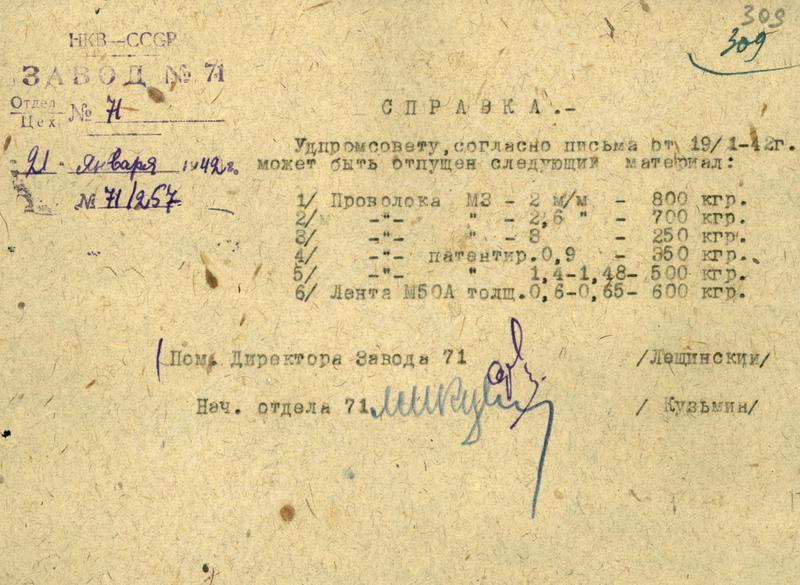 309
309
НКВ—СССР
ЗАВОД № 71
Отдел
Цех № 71
21 января 1942г.
№ 71/257
СПРАВКА.-
Удпромсовету,согласно письма от 19/1-42г.
может быть отпущен следующий материал:
1/ Проволока МЗ - 2 м/м - 800 кгр.
2/ -"- " - 2,6 " - 700 кгр.
3/ -"- " - 3 - 250 кгр.
4/ -"- патентир.0,9 - 350 кгр.
5/ -"- " 1,4-1,48- 500 кгр.
6/ Лента М50А толщ.0,6-0,65- 600 кгр.
Пом. Директора Завода 71 /Лещинский/
Нач. отдела 71 / Кузьмин/